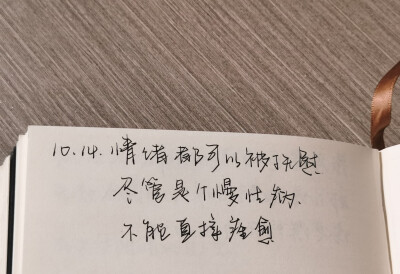 10.14.情绪都可以被抚慰
尽管是个慢性病、
不能直接痊愈